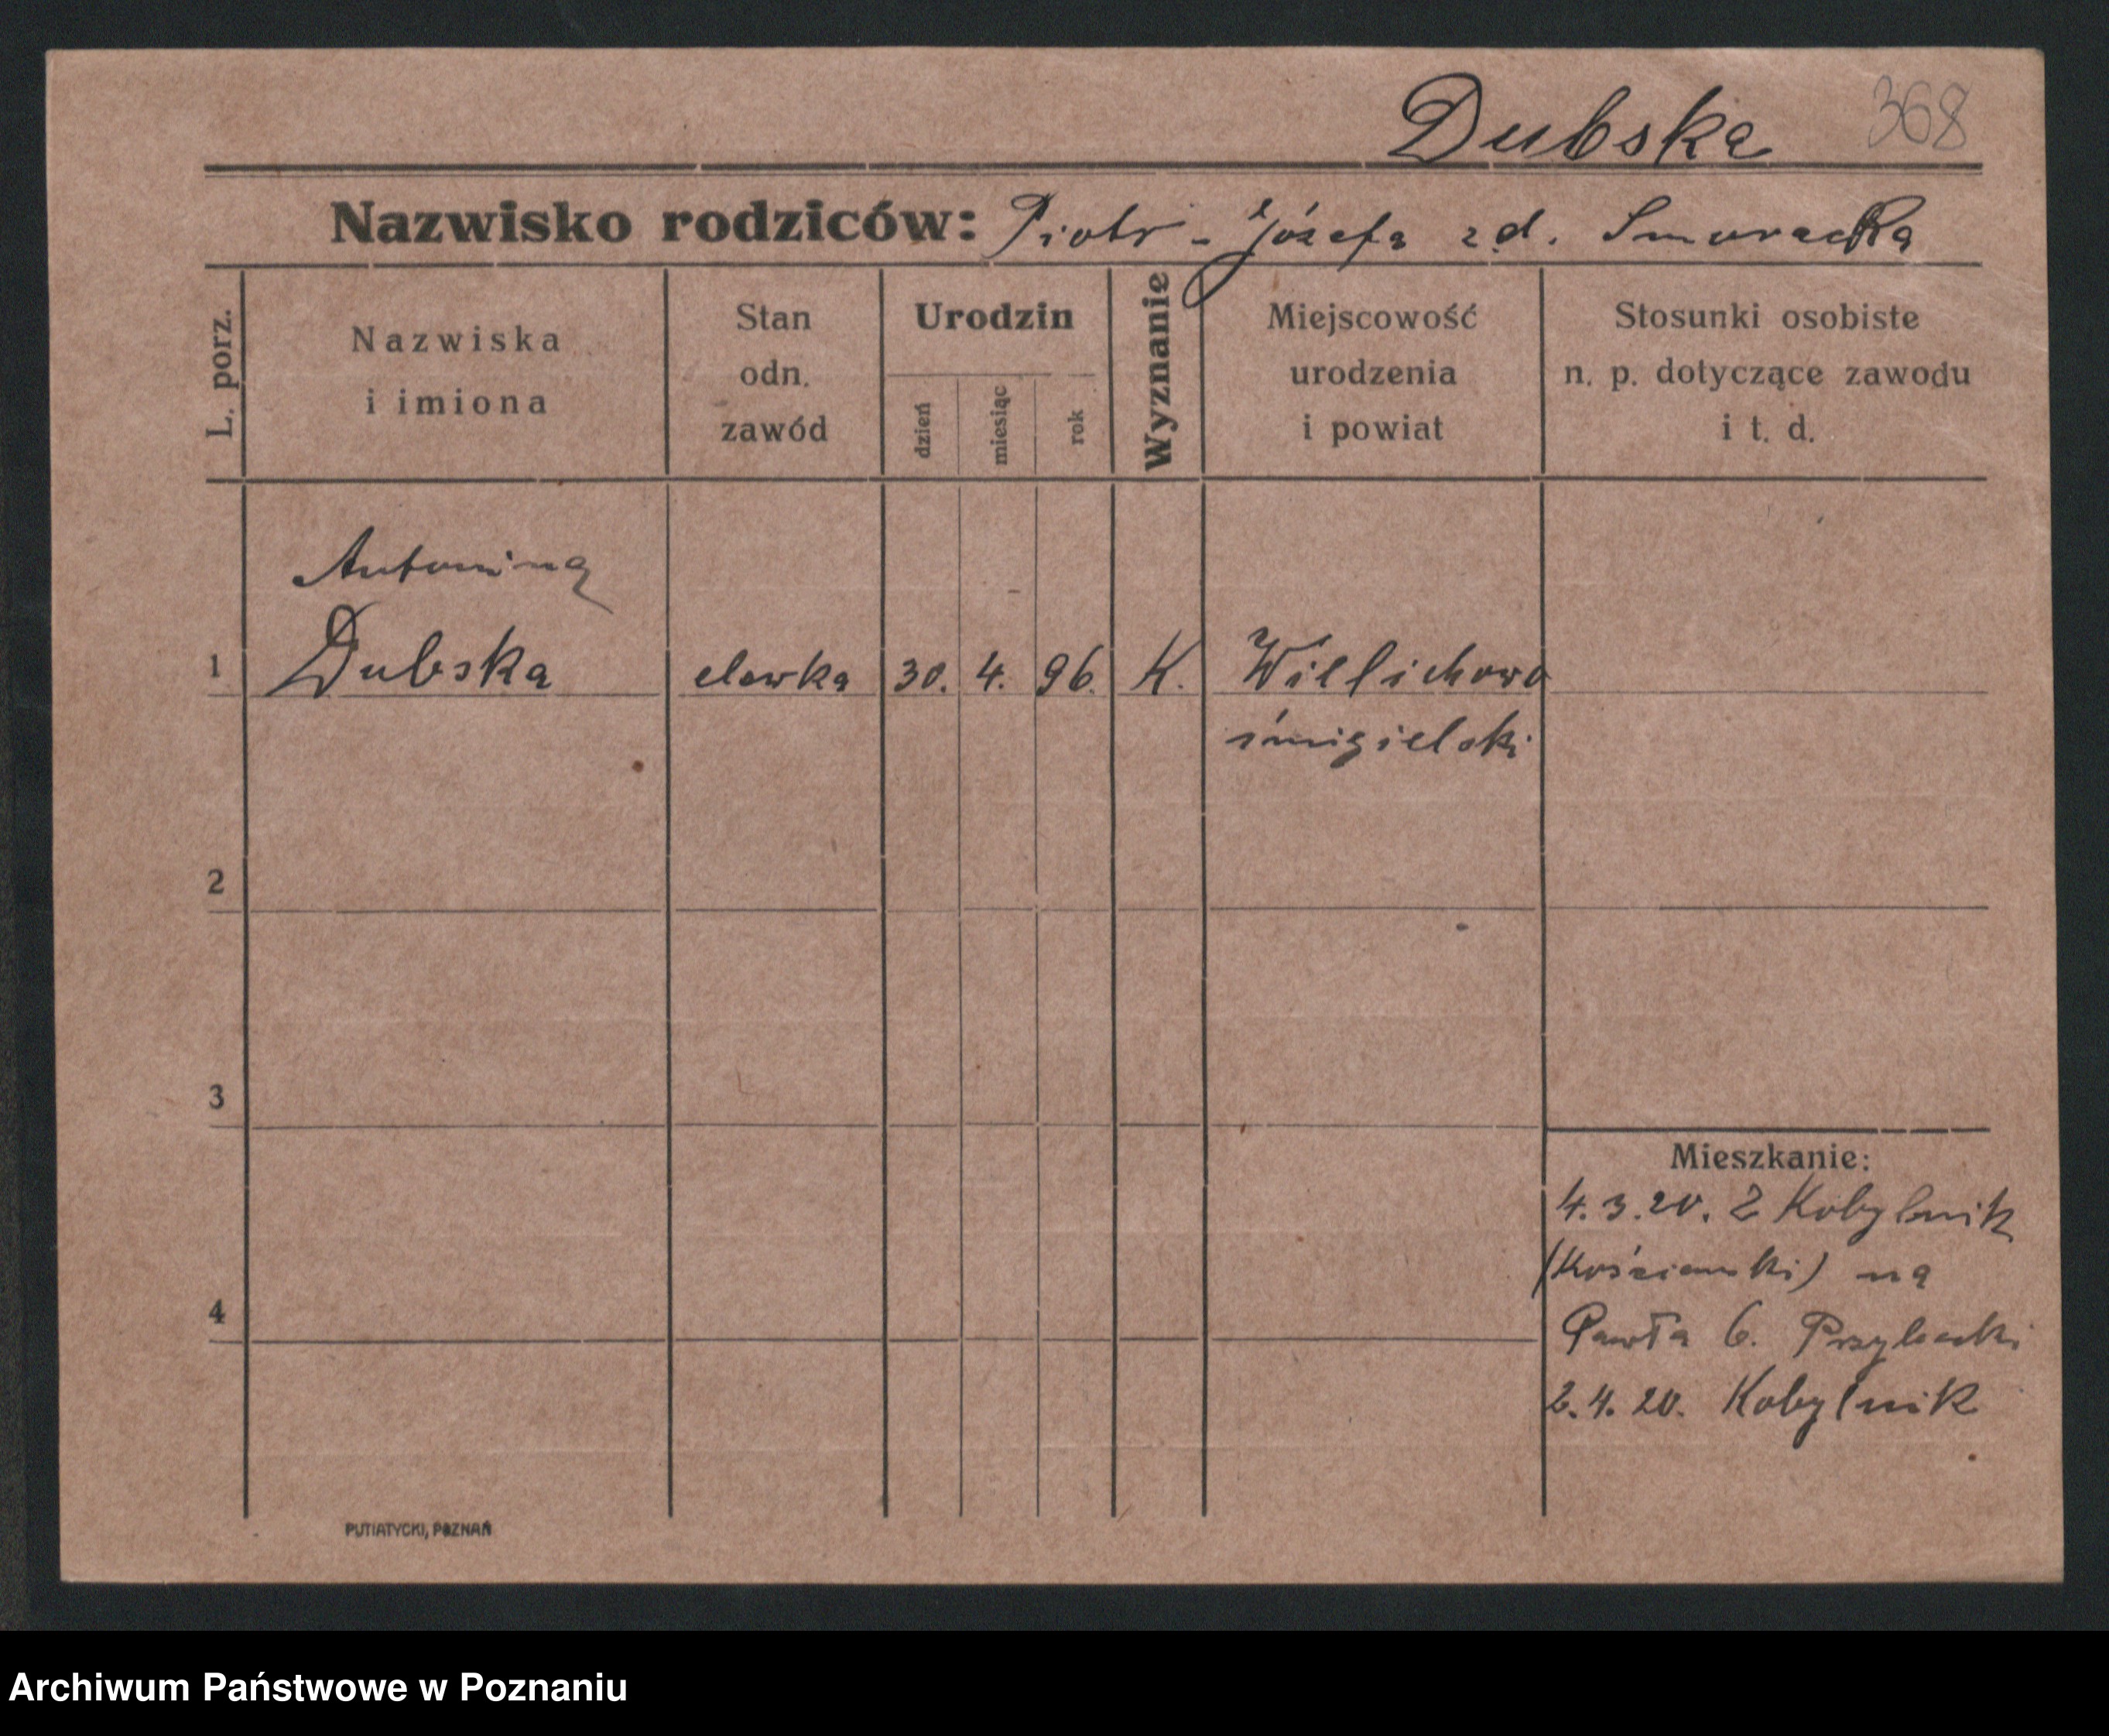 Dubska 368
Nazwisko rodziców: Piotr - Józefa zd. Smoracka
L. porz.
Nazwiska
i imiona
Stan
odn.
zawód
Urodzin
dzień
miesiąc
rok
Wyznanie
Miejscowość
urodzenia
i powiat
Stosunki osobiste
n. p. dotyczące zawodu
i t. d.
Antonina
1 Dubska elewka 30. 4. 96. K. Wielichowo
śmigielski
2
3
4
Mieszkanie:
4.3.20. Z Kobylnik
(Kościański) na
Pawła 6. Przylecki
2.4.20. Kobylnik
PUTIATYCKI, POZNAŃ
Archiwum Państwowe w Poznaniu